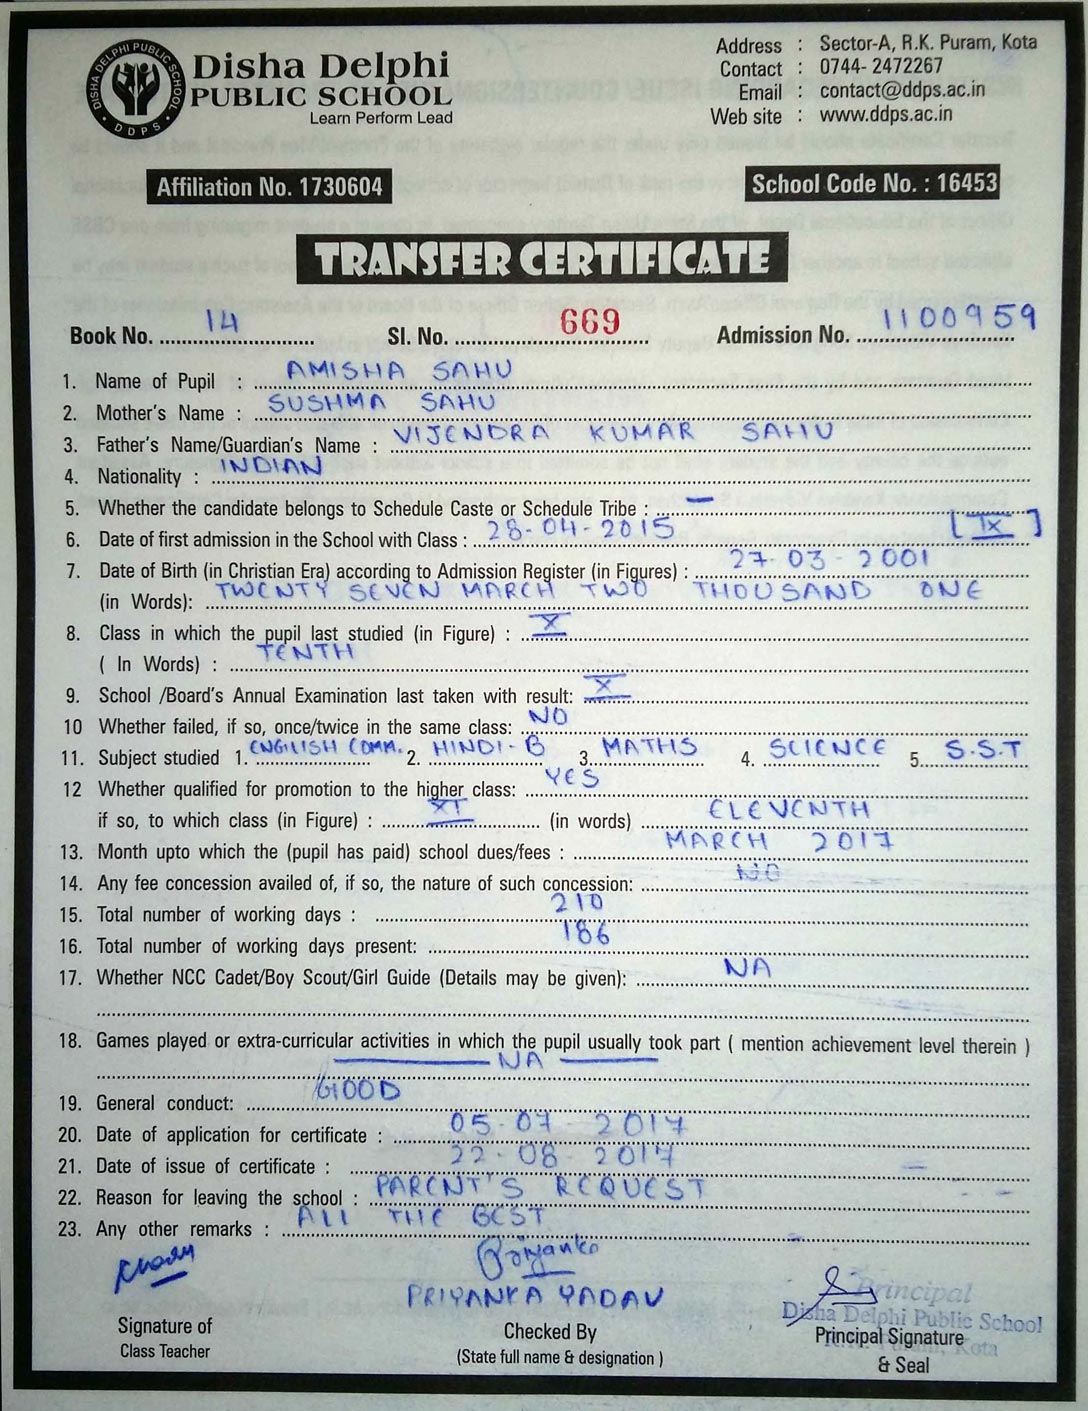 DISHA DELPHI PUBLIC SCHOOL
DDPS
Disha Delphi
PUBLIC SCHOOL
Learn Perform Lead
Address : Sector-A, R.K. Puram, Kota
Contact : 0744- 2472267
Email : contact@ddps.ac.in
Web site : www.ddps.ac.in
Affiliation No. 1730604
School Code No. : 16453
TRANSFER CERTIFICATE
Book No. 14 Sl. No. 669 Admission No. 1100959
1. Name of Pupil : AMISHA SAHU
2. Mother's Name : SUSHMA SAHU
3. Father's Name/Guardian's Name : VIJENDRA KUMAR SAHU
4. Nationality : INDIAN
5. Whether the candidate belongs to Schedule Caste or Schedule Tribe : —
6. Date of first admission in the School with Class : 28-04-2015 [IX]
7. Date of Birth (in Christian Era) according to Admission Register (in Figures) : 27-03-2001
(in Words): TWENTY SEVEN MARCH TWO THOUSAND ONE
8. Class in which the pupil last studied (in Figure) : X
( In Words) : TENTH
9. School /Board's Annual Examination last taken with result: X
10 Whether failed, if so, once/twice in the same class: NO
11. Subject studied 1. ENGLISH COMM. 2. HINDI-B 3. MATHS 4. SCIENCE 5. S.S.T
12 Whether qualified for promotion to the higher class: YES
if so, to which class (in Figure) : XI (in words) ELEVENTH
13. Month upto which the (pupil has paid) school dues/fees : MARCH 2017
14. Any fee concession availed of, if so, the nature of such concession: NO
15. Total number of working days : 210
16. Total number of working days present: 186
17. Whether NCC Cadet/Boy Scout/Girl Guide (Details may be given): NA
18. Games played or extra-curricular activities in which the pupil usually took part ( mention achievement level therein )
NA
19. General conduct: GOOD
20. Date of application for certificate : 05-07-2017
21. Date of issue of certificate : 22-08-2017
22. Reason for leaving the school : PARENT'S REQUEST
23. Any other remarks : ALL THE BEST
Priyanka
PRIYANKA YADAV
Principal
Disha Delphi Public School
R.K. Puram, Kota
Signature of
Class Teacher
Checked By
(State full name & designation )
Principal Signature
& Seal